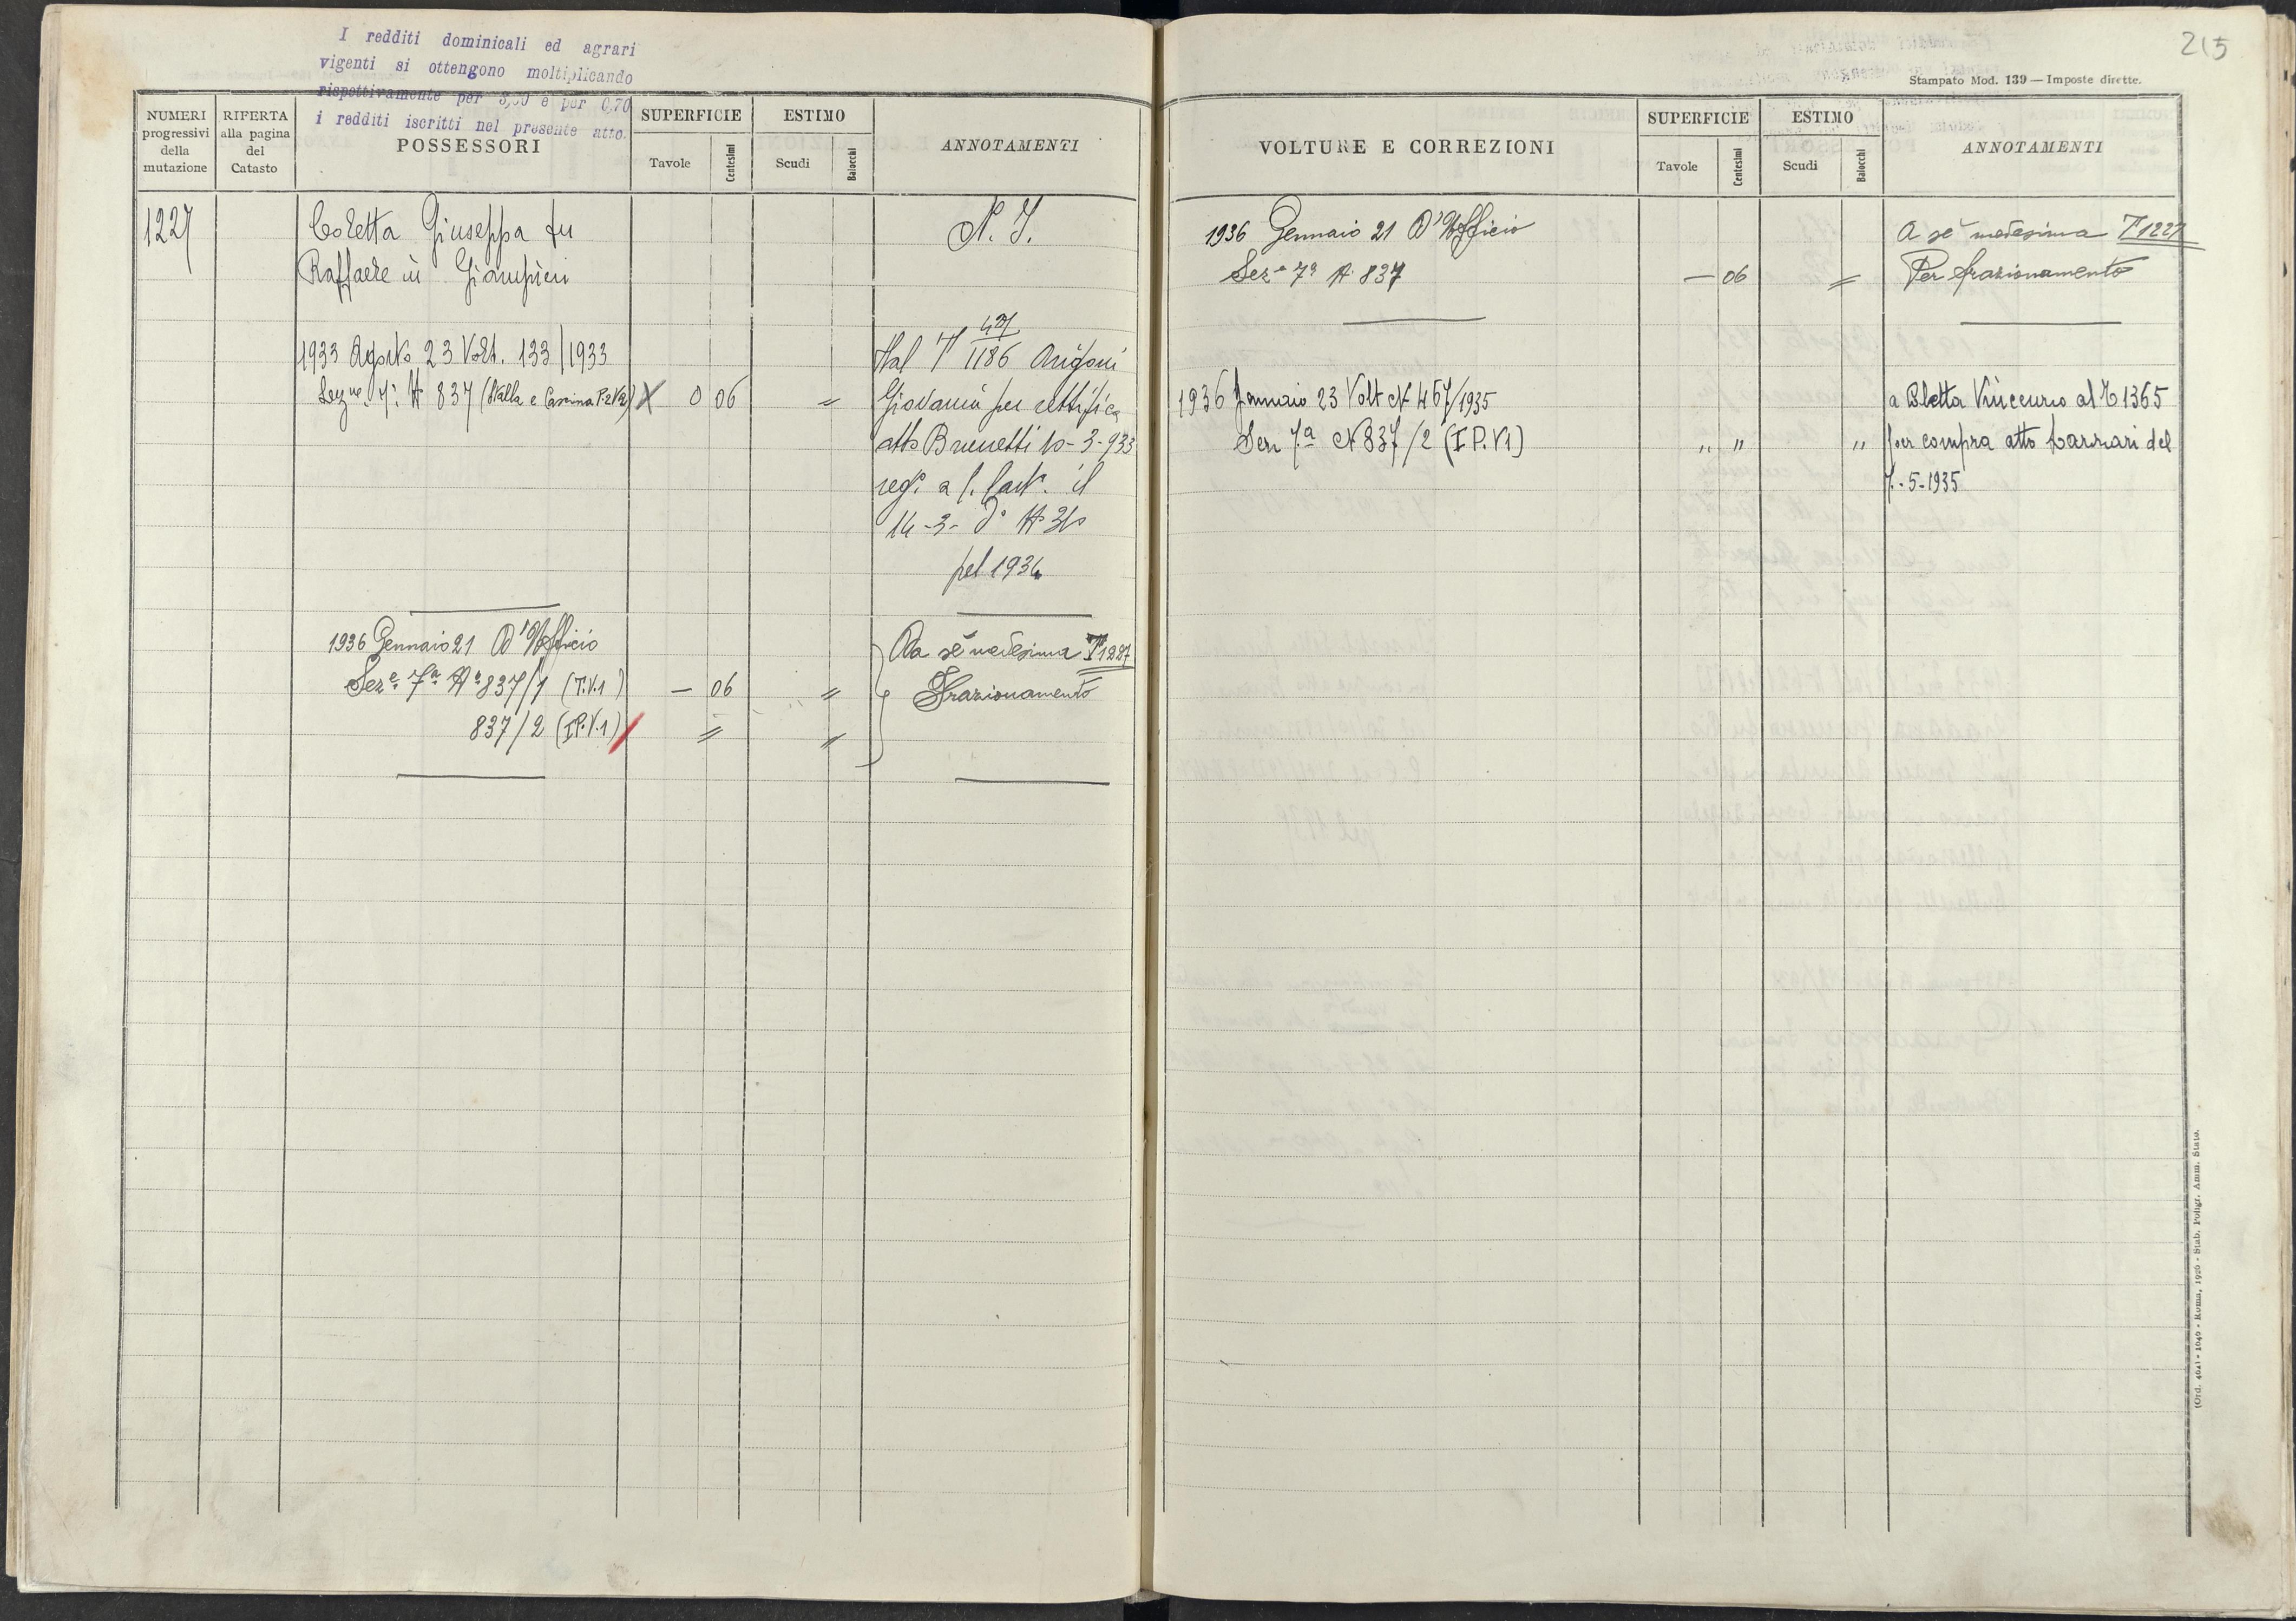 I redditi dominicali ed agrari
vigenti si ottengono moltiplicando
rispettivamente per 3,50 e per 0,70
i redditi iscritti nel presente atto.
NUMERI progressivi della mutazione
RIFERTA alla pagina del Catasto
POSSESSORI
SUPERFICIE
Tavole
Centesimi
ESTIMO
Scudi
Baiocchi
ANNOTAMENTI
1227
Coletta Giuseppa fu
Raffaele in Giampieri
N. I.
1933 Agosto 23 Volt. 133/1933
Sez.ne 7ª N 837 (Stalla e Cascina P. 2 V 2) X 0 06 "
427
Dal T 1186 Arigoni
Giovanni per rettifica
atto Brunetti 10-3-933
reg. a C. Cast. il
14-3- do No
pel 1934
1936 Gennaio 21 D'Ufficio
Seze 7ª No 837/1 (T.V.1) — 06 "
837/2 (I P.V.1) " "
Da sè medesima T 1227
Frazionamento
215
Stampato Mod. 139 — Imposte dirette.
VOLTURE E CORREZIONI
SUPERFICIE
Tavole
Centesimi
ESTIMO
Scudi
Baiocchi
ANNOTAMENTI
1936 Gennaio 21 D'Ufficio
Seze 7ª N 837 — 06 "
A sè medesima T 1227
Per frazionamento
1936 Gennaio 23 Volt N 467/1935
Sez 7.a N 837/2 (I P. V1) " " "
a Coletta Vincenzo al T 1365
per compra atto del
7-5-1935
(Ord. 464) - 1040 - Roma, 1926 - Stab. Poligr. Amm. Stato.